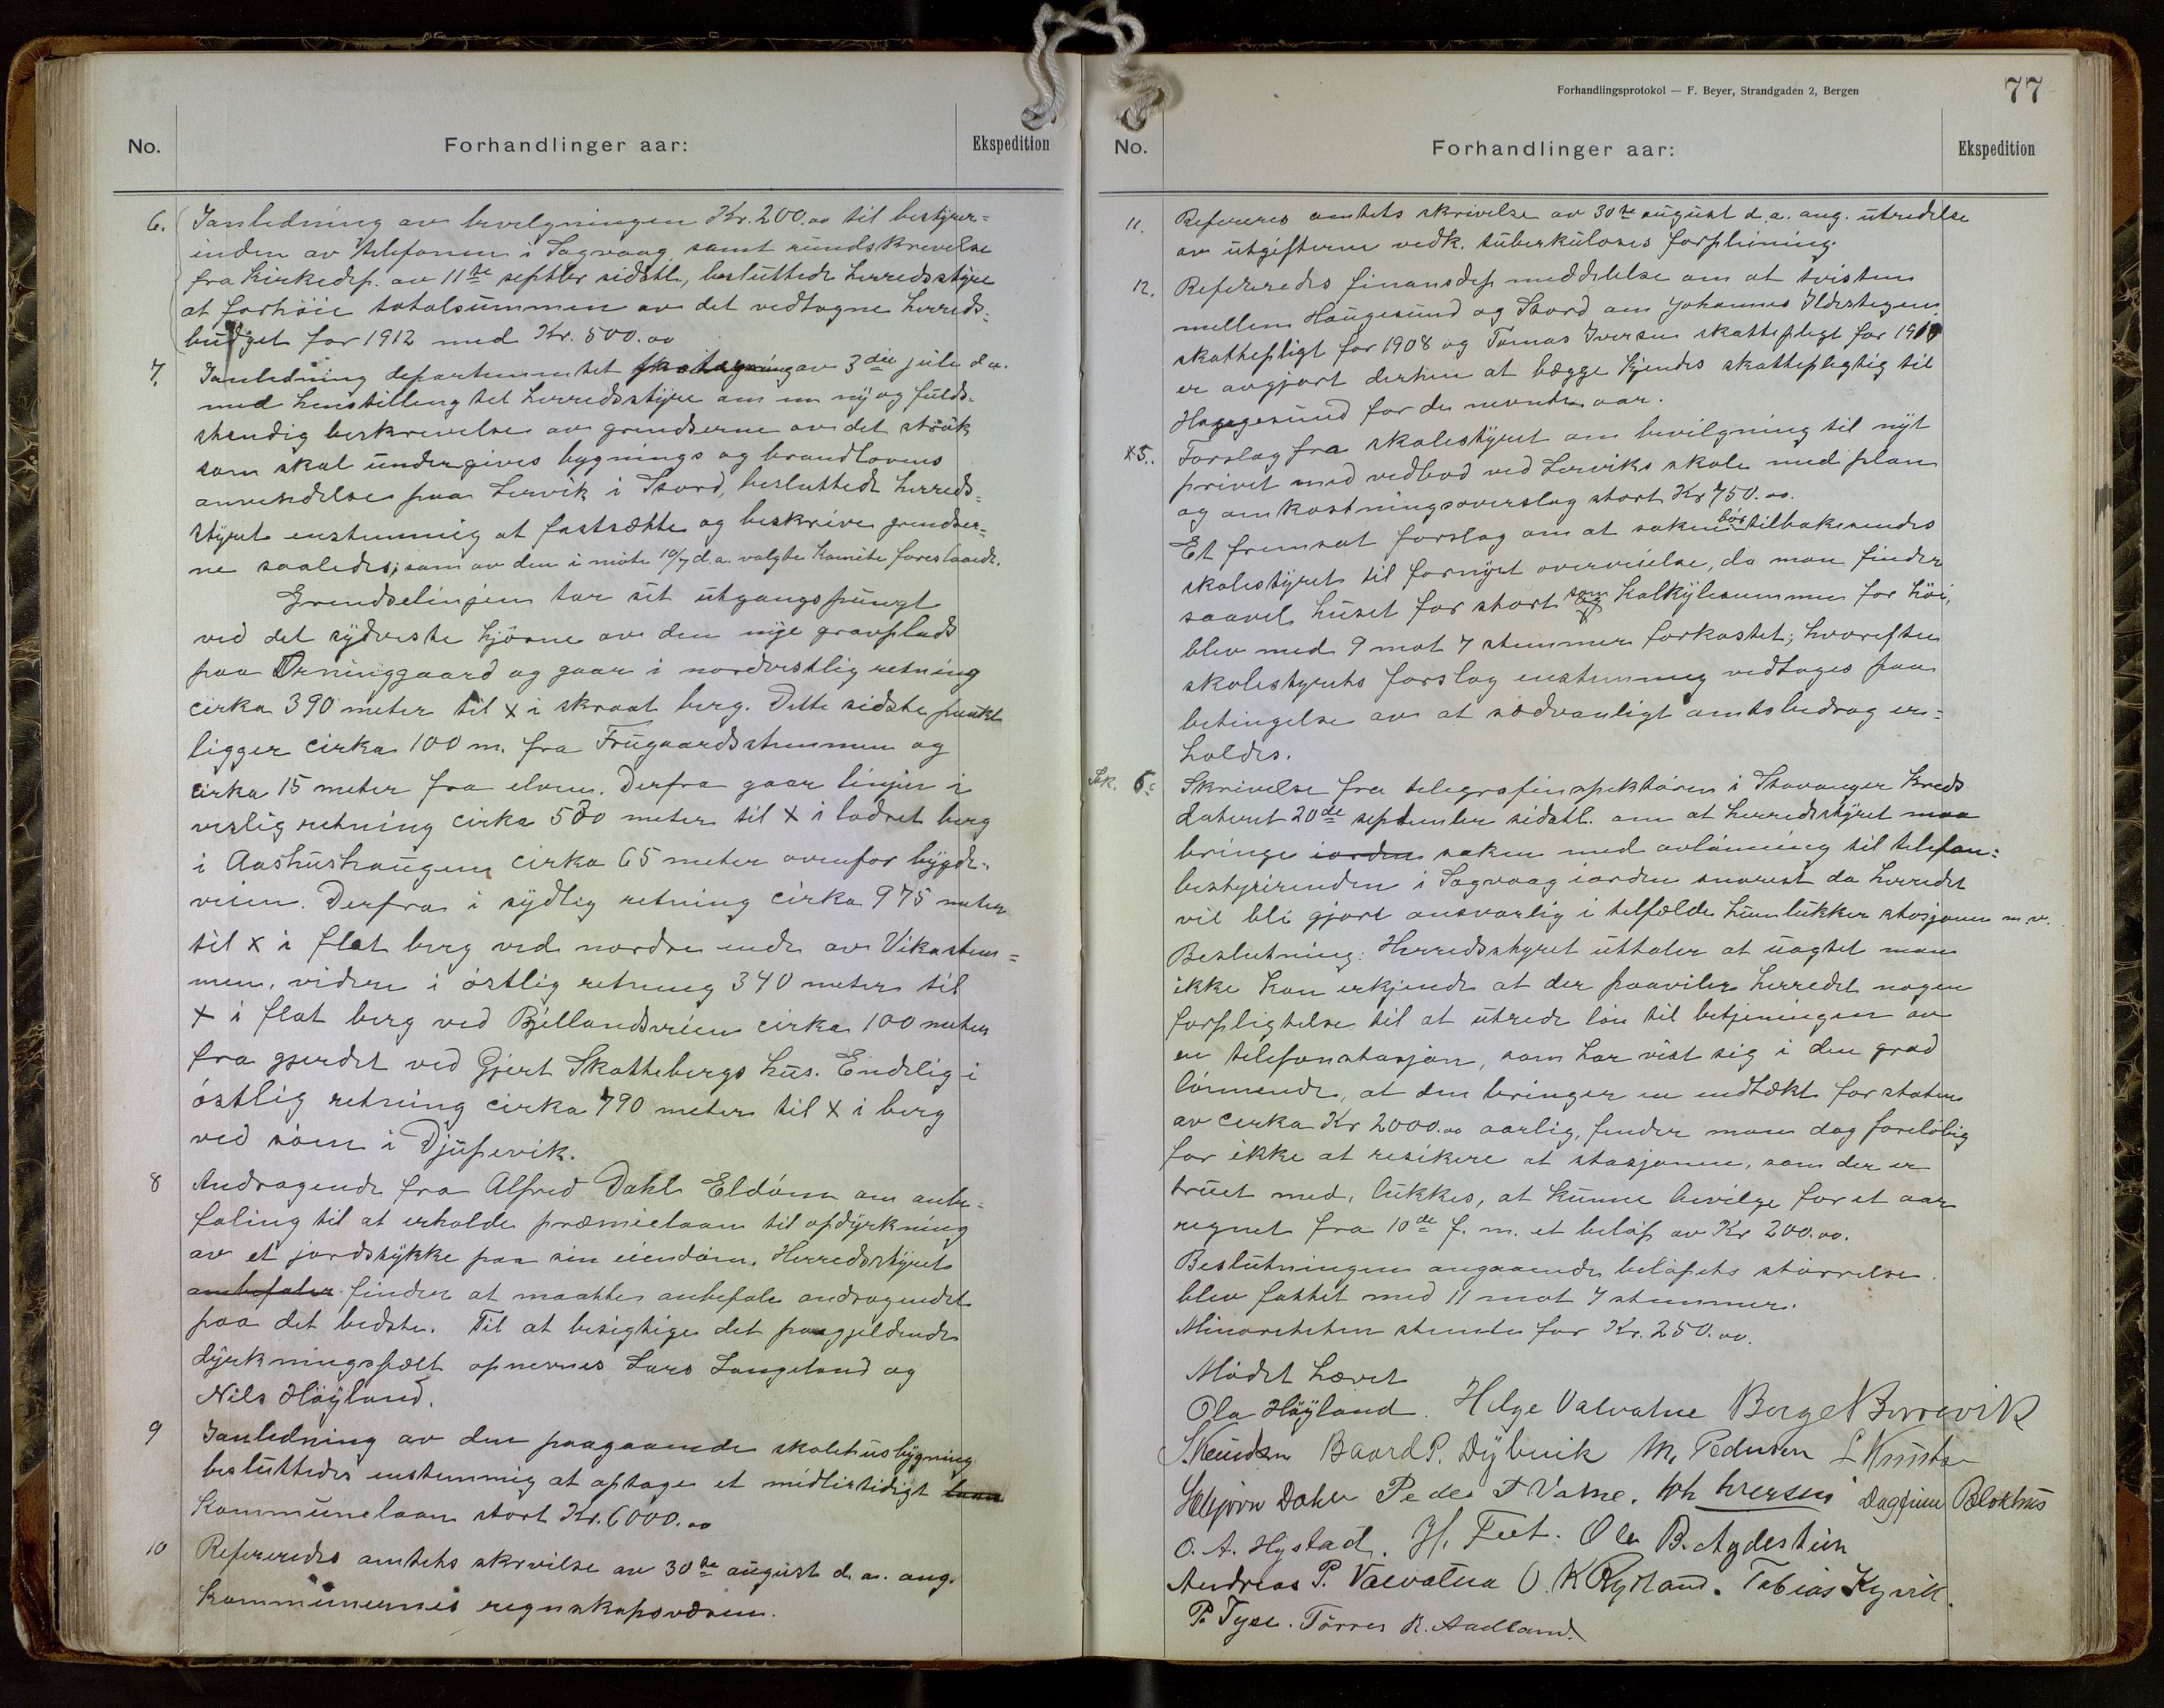 No.
Forhandlinger aar:
Ekspedition
6. Ianledning av bevilgningen Kr. 200.00 til bestyrer=
inden av telefonen i Sagvaag samt rundskrivelse
fra Kirkedep. av 11te septbr sidstl., besluttede herredsstyre
at forhöie totalsummen av det vedtagne herreds=
budget for 1912 med Kr. 500.00
7. Ianledning departementet av 3die juli d.a.
med henstilling til herredsstyre om en ny og fuld=
stendig beskrivelse av grendserne av det strök
som skal undergives bygnings og brandlovens
anvendelse paa Lervik i Stord, besluttede herreds=
styret enstemmig at fastsætte og beskrive grendser=
ne saaledes, som av den i möte 10/7 d.a. valgte Komite foreslaaede.
Grendselinjen tar sit utgangspungt
ved det sydveste hjörne av den nye gravplads
paa Orninggaard og gaar i nordvestlig retning
cirka 390 meter til x i skraat berg. Dette sidste punkt
ligger cirka 100 m. fra Frugaardsstemmen og
cirka 15 meter fra elven. Derfra gaar linjen i
veslig retning cirka 500 meter til x i lodret berg
i Aashushaugen cirka 65 meter ovenfor bygde=
veien. Derfra i sydlig retning cirka 975 meter
til x i flat berg ved nordre ende av Vikastem=
men, videre i östlig retning 340 meter til
x i flat berg ved Bjellandsveien cirka 100 meter
fra gjerdet ved Gjert Skattebergs hus. Endelig i
östlig retning cirka 790 meter til x i berg
ved sjöen i Djupevik.
8 Andragende fra Alfred Dahl Eldöen om anbe=
faling til at erholde præmielaan til opdyrkning
av et jordstykke paa sin eiendom. Herredsstyret
anbefaler finder at maatte anbefale andragendet
paa det bedste. Til at besigtige det paagjeldende
dyrkningsfælt opnevnes Lars Langeland og
Nils Höyland.
9 Ianledning av den paagaaende skolehusbygning
besluttedes enstemmig at optage et midlertidigt laan
Kommunelaan stort Kr. 6000.00
10 Refereredes amtets skrivelse av 30te august d.a. ang.
Kommunernes regnskapsvæsen.
Forhandlingsprotokol — F. Beyer, Strandgaden 2, Bergen
77
No.
Forhandlinger aar:
Ekspedition
11. Refereres amtets skrivelse av 30te august d.a. ang. utredelse
av utgifterne vedk. tuberkuloses forpleining.
12. Refereredes finansdep meddelelse om at tvisten
mellem Haugesund og Stord om Johannes Ildstegens
skattepligt for 1908 og Tomas Iversen skattepligt for 1910
er avgjort derhen at begge kjendes skattepligtig til
Haugesund for de nevnte aar.
x5. Forslag fra skolestyret om bevilgning til nyt
privet med vedbod ved Lerviks skole med plan
og omkostningsoverslag stort Kr 750.00.
Et fremsat forslag om at saken bör tilbakesendes
skolestyret til fornyet overveielse, da man finder
saavel huset for stort som Kalkylesummen for höi,
blev med 9 mot 7 stemmer forkastet; hvorefter
skolestyrets forslag enstemmig vedtages paa
betingelse av at sædvanligt amtsbedrag er=
holdes.
Sek. 6. Skrivelse fra telegrafinspektören i Stavanger Kreds
dateret 20de september sidstl. om at herredsstyret maa
bringe iorden saken med avlönning til telefon=
bestyrerinden i Sagvaag iorden snarest da herredet
vil bli gjort ansvarlig i tilfælde hun lukker stasjonen m.v.
Beslutning: Herredsstyret uttaler at uagtet man
ikke kan erkjende at der paaviler herredet nogen
forpligtelse til at utrede lön til betjeningen av
en telefonstasjon, som har vist sig i den grad
lönnende, at den bringer en indtækt for staten
av cirka Kr 2000.00 aarlig, finder man dog foreløbig
for ikke at risikere at stasjonen, som der er
truet med, lukkes, at kunne bevilge for et aar
regnet fra 10de f.m. et belöp av Kr 200.00.
Beslutningen angaaende belöpets störrelse
blev fattet med 11 mot 7 stemmer.
Minoriteten stemte for Kr. 250.00.
Mödet hævet
Ola Höyland. Helge Valvatne Berge Borrevik
S. Knudsen Baard P. Dybvik M. Pedersen L Knuts
Dahle Peder T Vatne. Joh Iversen Dagfinn Blokhus
O. A. Hystad. H. Feet. Ole B. Agdestein
Andreas P. Valvatna O. K Rydland. Tobias Kyvik.
P. Tyse. Törres R. Aadland.